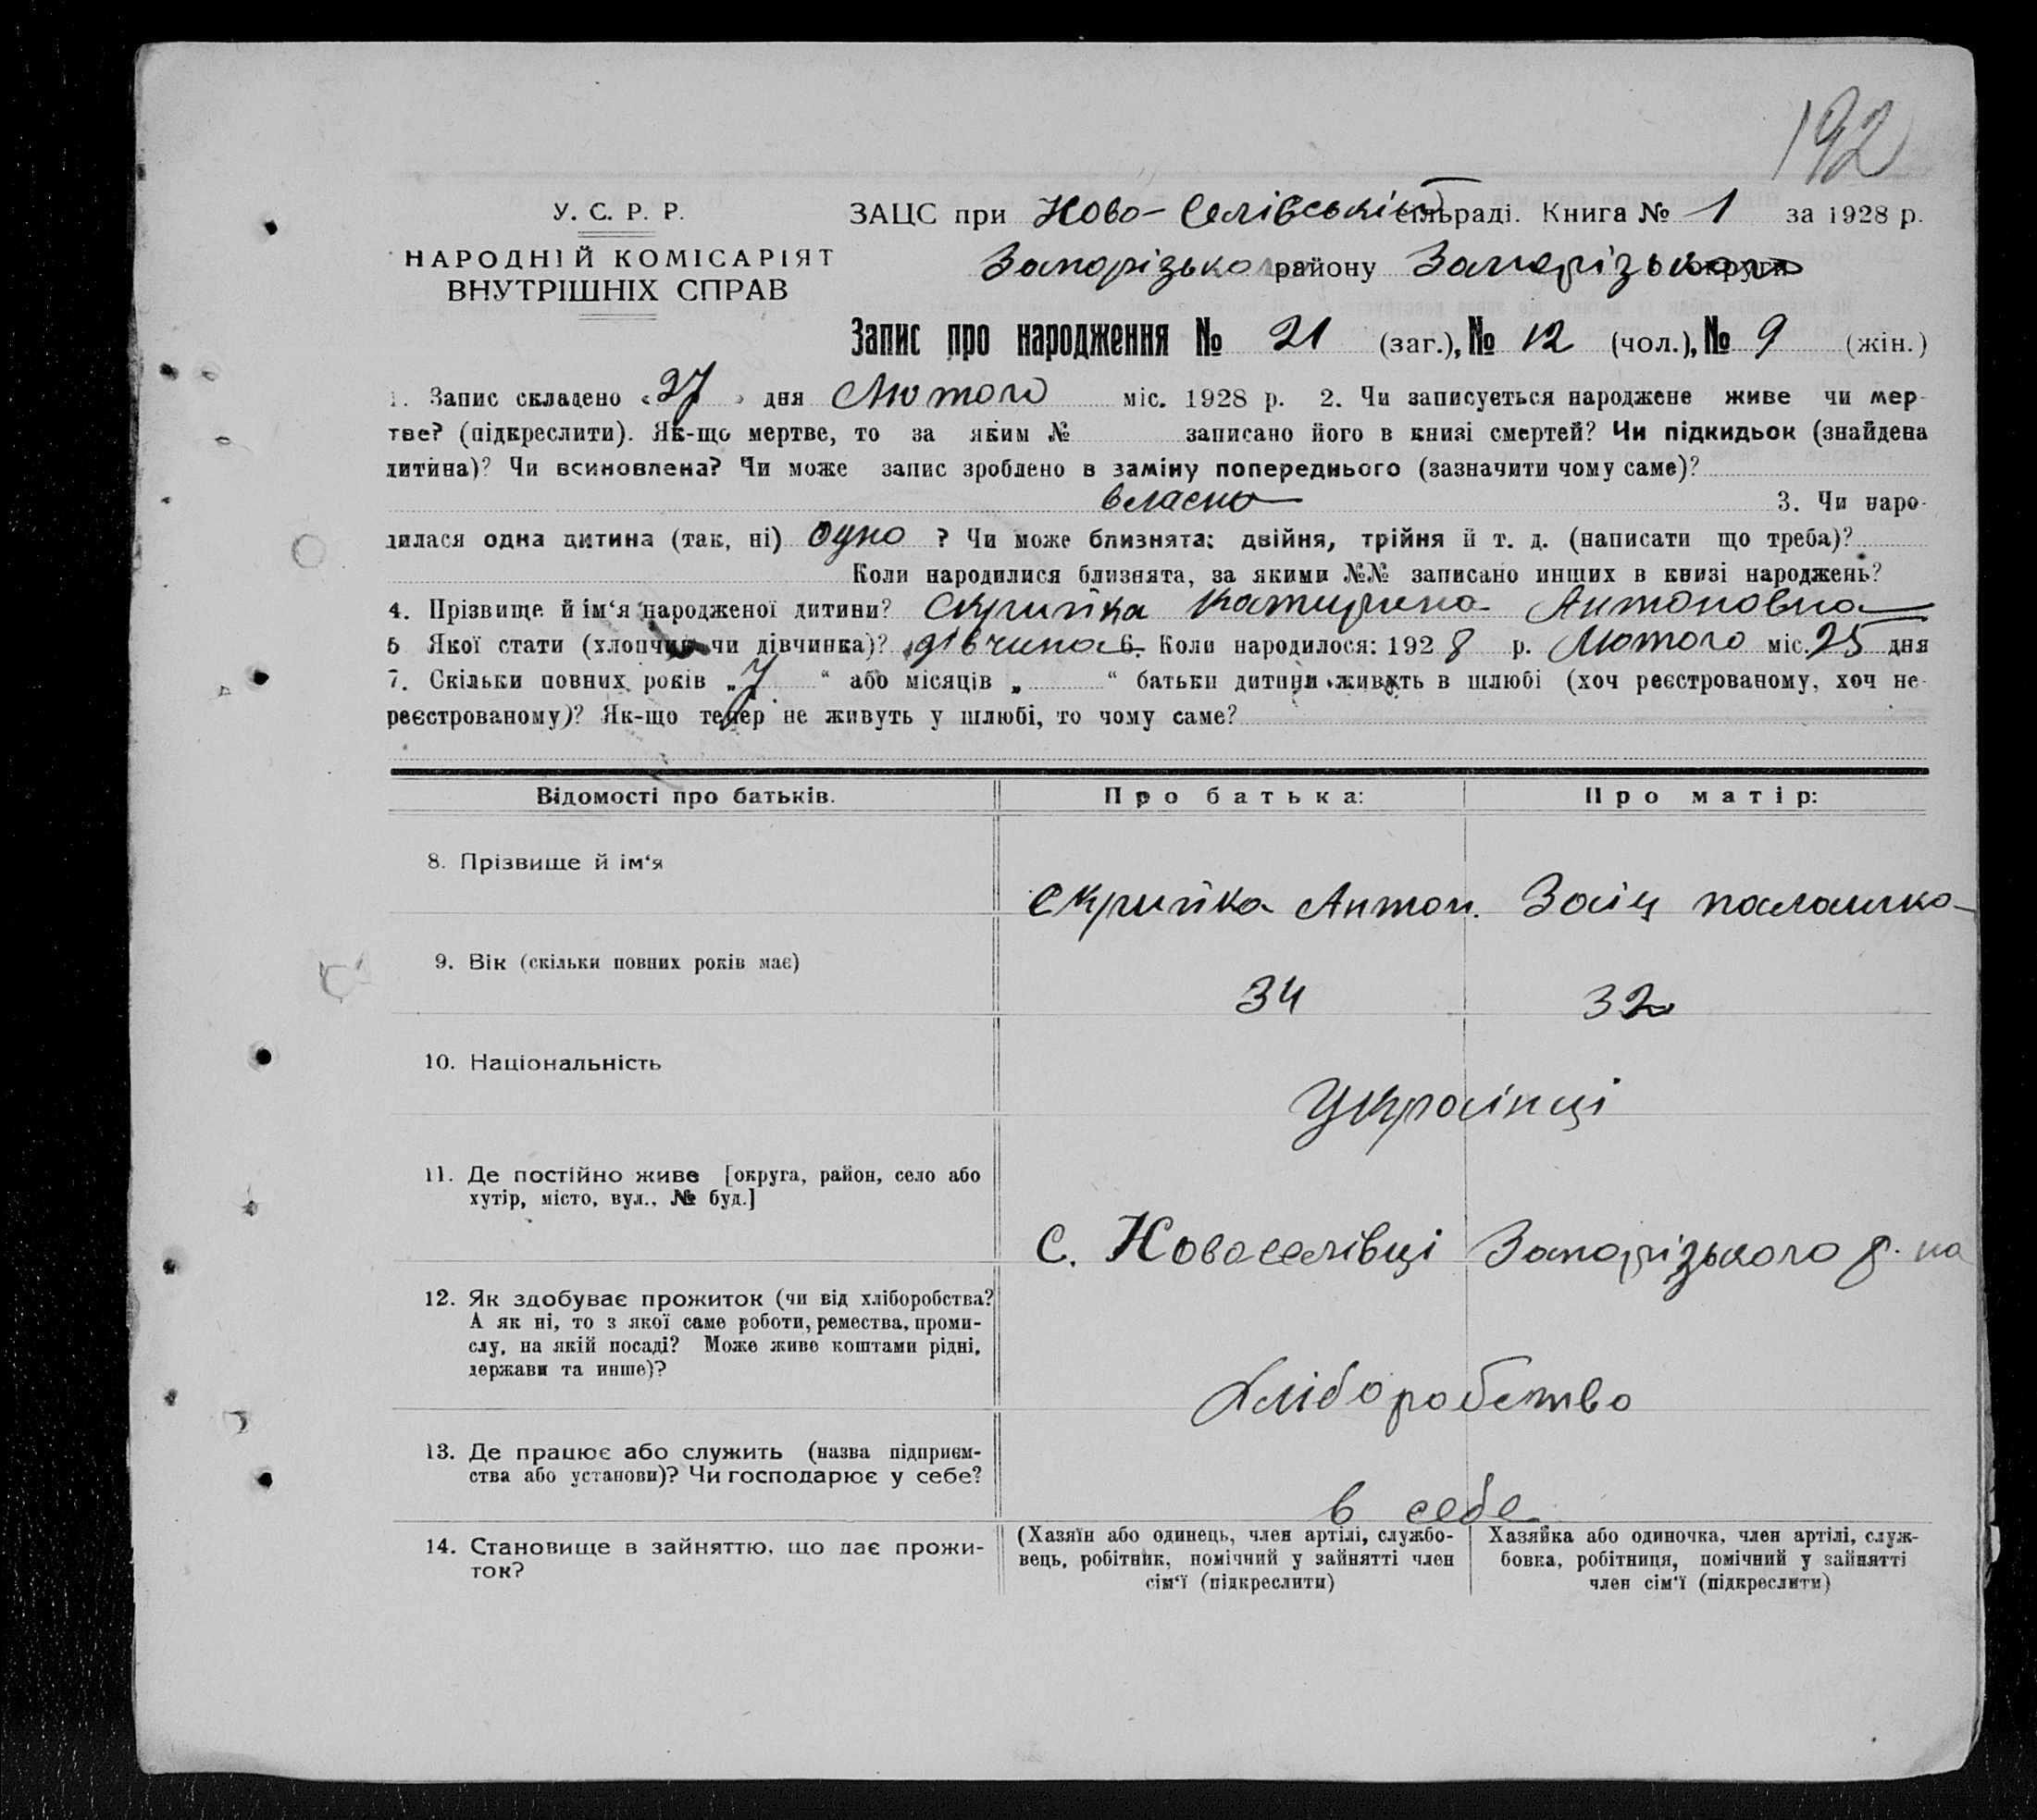 192
У. С. Р. Р.
НАРОДНІЙ КОМІСАРІЯТ
ВНУТРІШНІХ СПРАВ
ЗАЦС при Ново-Селівській сільраді. Книга № 1 за 1928 р.
Запорізького району Запорізького округи
Запис про народження № 21 (заг.), № 12 (чол.), № 9 (жін.)
1. Запис складено «27» дня Лютого міс. 1928 р. 2. Чи записується народжене живе чи мер-
тве? (підкреслити). Як-що мертве, то за яким № записано його в книзі смертей? Чи підкидьок (знайдена
дитина)? Чи всиновлена? Чи може запис зроблено в заміну попереднього (зазначити чому саме)?
власно 3. Чи наро-
дилася одна дитина (так, ні) одно ? Чи може близнята: двійня, трійня й т. д. (написати що треба)?
Коли народилися близнята, за якими №№ записано инших в книзі народжень?
4. Прізвище й ім‘я народженої дитини? Скрипка Катирина Антоновна
5 Якої стати (хлопчик чи дівчинка)? дівчина 6. Коли народилося: 1928 р. Лютого міс. 25 дня
7. Скільки повних років „7“ або місяців „ “ батьки дитини живуть в шлюбі (хоч реєстрованому, хоч не-
реєстрованому)? Як-що тепер не живуть у шлюбі, то чому саме?
Відомості про батьків. Про батька: Про матір:
8. Прізвище й ім‘я Скрипка Антон. Заїц палашка
9. Вік (скільки повних років має) 34 32
10. Національність Українці
11. Де постійно живе [округа, район, село або
хутір, місто, вул., № буд.]
С. Новоселівці Запорізького р-на
12. Як здобуває прожиток (чи від хліборобства?
А як ні, то з якої саме роботи, ремества, проми-
слу, на якій посаді? Може живе коштами рідні,
держави та инше)?
Хліборобство
13. Де працює або служить (назва підприєм-
ства або установи)? Чи господарює у себе?
в себе
14. Становище в зайняттю, що дає прожи-
ток?
(Хазяїн або одинець, член артілі, службо-
вець, робітник, помічний у зайнятті член
сім‘ї (підкреслити)
Хазяйка або одиночка, член артілі, служ-
бовка, робітниця, помічний у зайнятті
член сім‘ї (підкреслити)